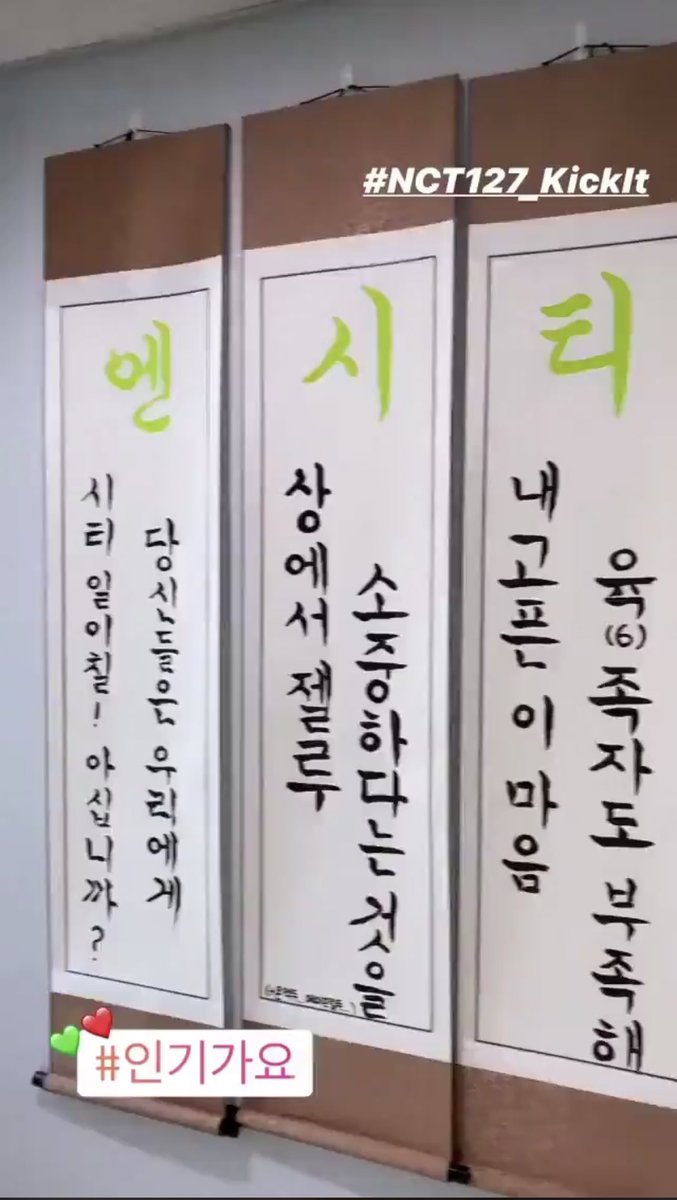 #NCT127_KickIt
엔
시티 일이칠! 아십니까?
당신들은 우리에게
시
상에서 젤루
소중하다는 것을
티
내고픈 이 마음
육(6)족자도 부족해
#인기가요